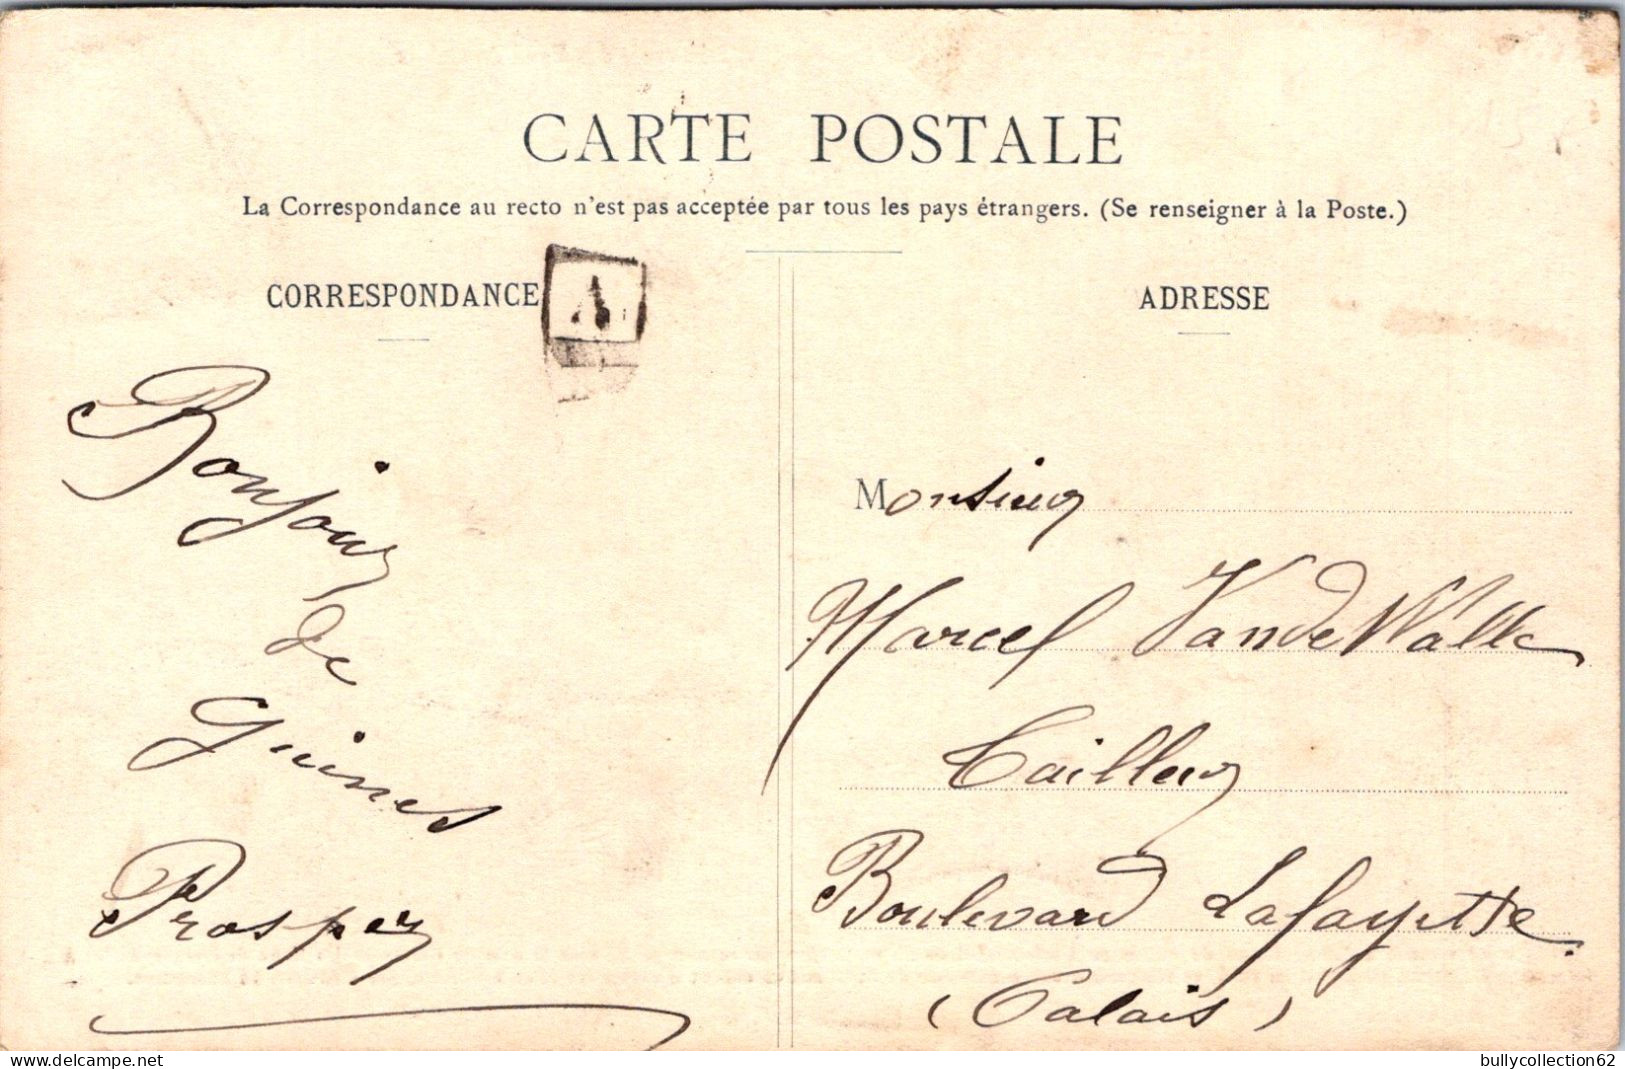 CARTE POSTALE
La Correspondance au recto n'est pas acceptée par tous les pays étrangers. (Se renseigner à la Poste.)
CORRESPONDANCE
A
Bonjour
de
Guines
Prosper
ADRESSE
Monsieur
Marcel VandeWalle
Tailleur
Boulevard Lafayette.
(Calais)
www.delcampe.net
bullycollection62